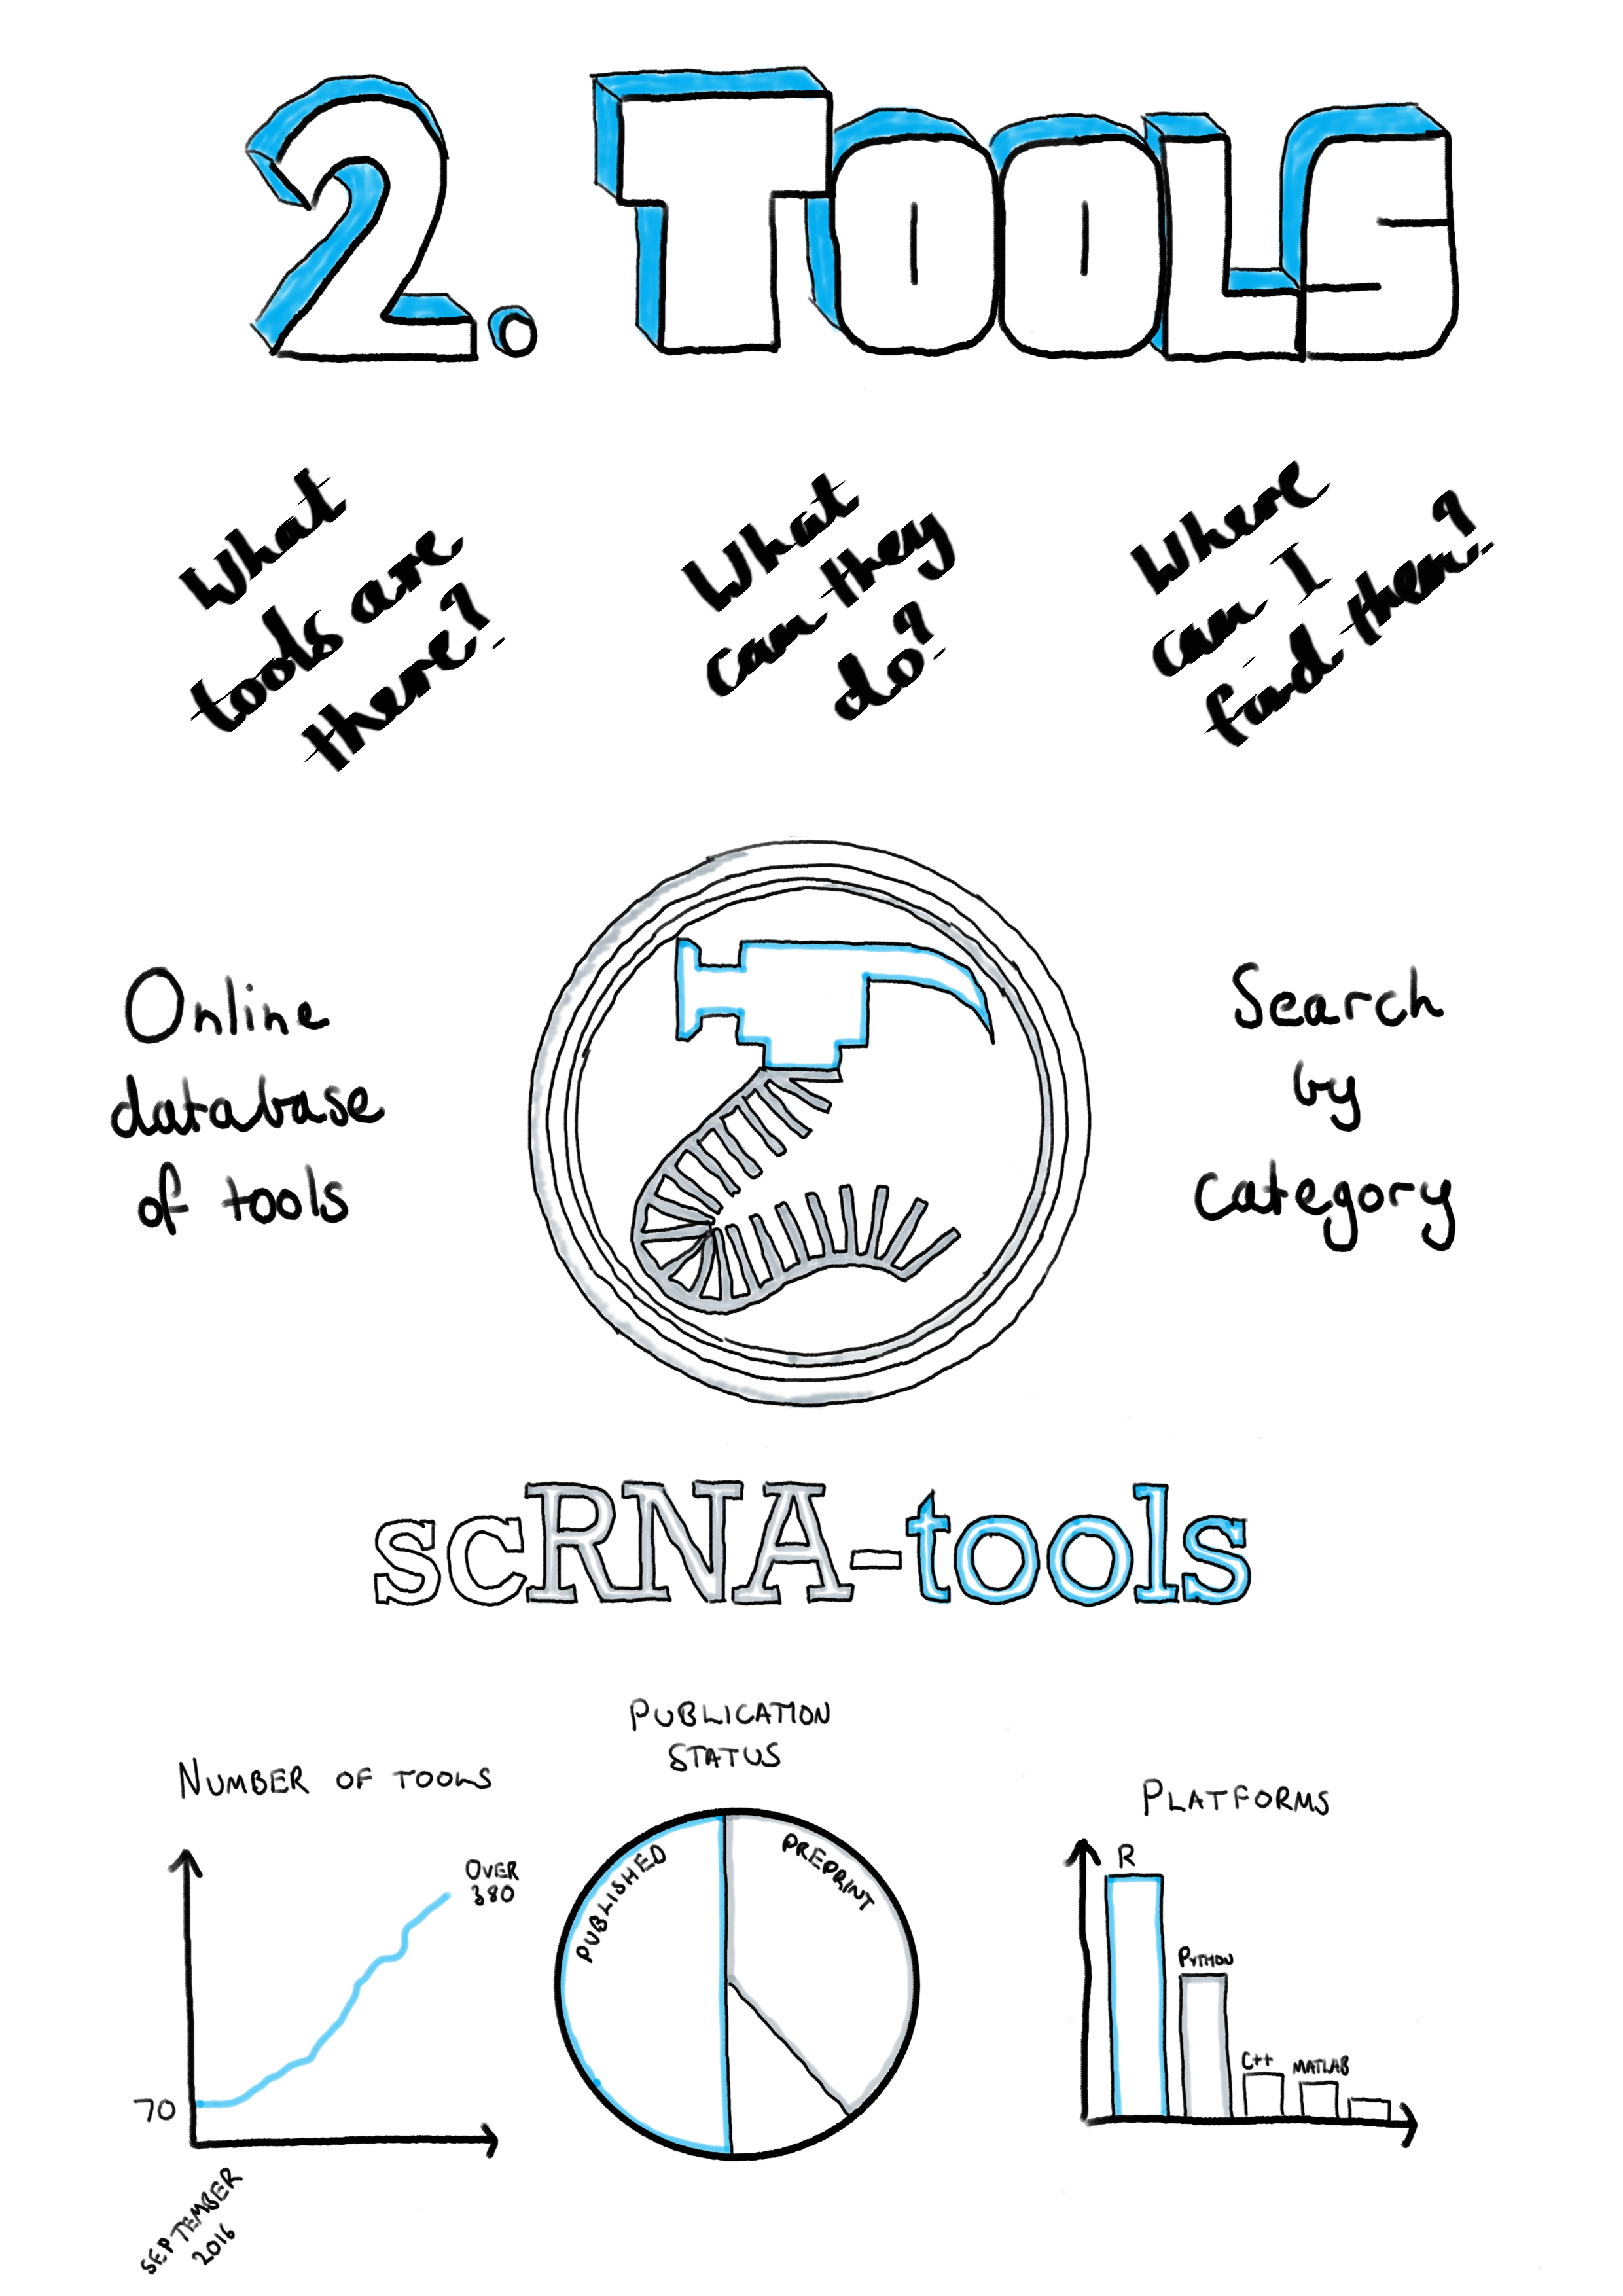 2. TOOLS
What
tools are
there?
What
can they
do?
Where
can I
find them?
Online
database
of tools
Search
by
category
scRNA-tools
NUMBER OF TOOLS
OVER
380
70
SEPTEMBER
2016
PUBLICATION
STATUS
PUBLISHED
PREPRINT
PLATFORMS
R
PYTHON
C++
MATLAB